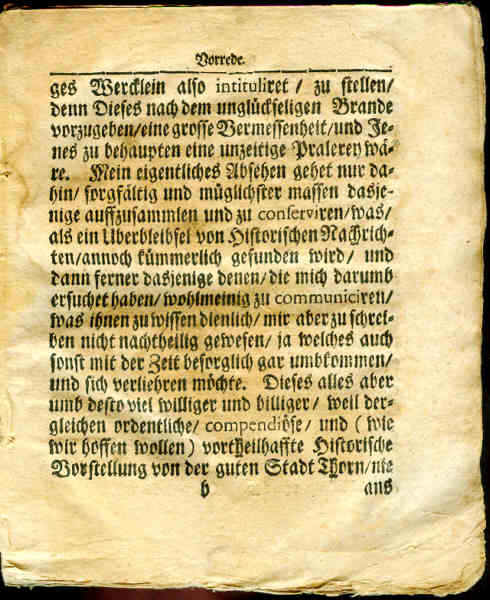 Vorrede.
ges Wercklein also intituliret / zu stellen/
denn Dieses nach dem unglückseligen Brande
vorzugeben/eine grosse Vermessenheit/und Je-
nes zu behaupten eine unzeitige Pralerey wä-
re. Mein eigentliches Absehen gehet nur da-
hin/ sorgfältig und müglichster massen dasje-
nige auffzusammlen und zu conserviren/was/
als ein Uberbleibsel von Historischen Nachrich-
ten/annoch kümmerlich gefunden wird/ und
dann ferner dasjenige denen/die mich darumb
ersuchet haben/wohlmeinig zu communiciren/
was ihnen zu wissen dienlich/ mir aber zu schrei-
ben nicht nachtheilig gewesen/ ja welches auch
sonst mit der Zeit besorglich gar umbkommen/
und sich verliehren möchte. Dieses alles aber
umb desto viel williger und billiger / weil der-
gleichen ordentliche/ compendiöse/ und ( wie
wir hoffen wollen ) vortheilhaffte Historische
Vorstellung von der guten Stadt Thorn/nie
b aus